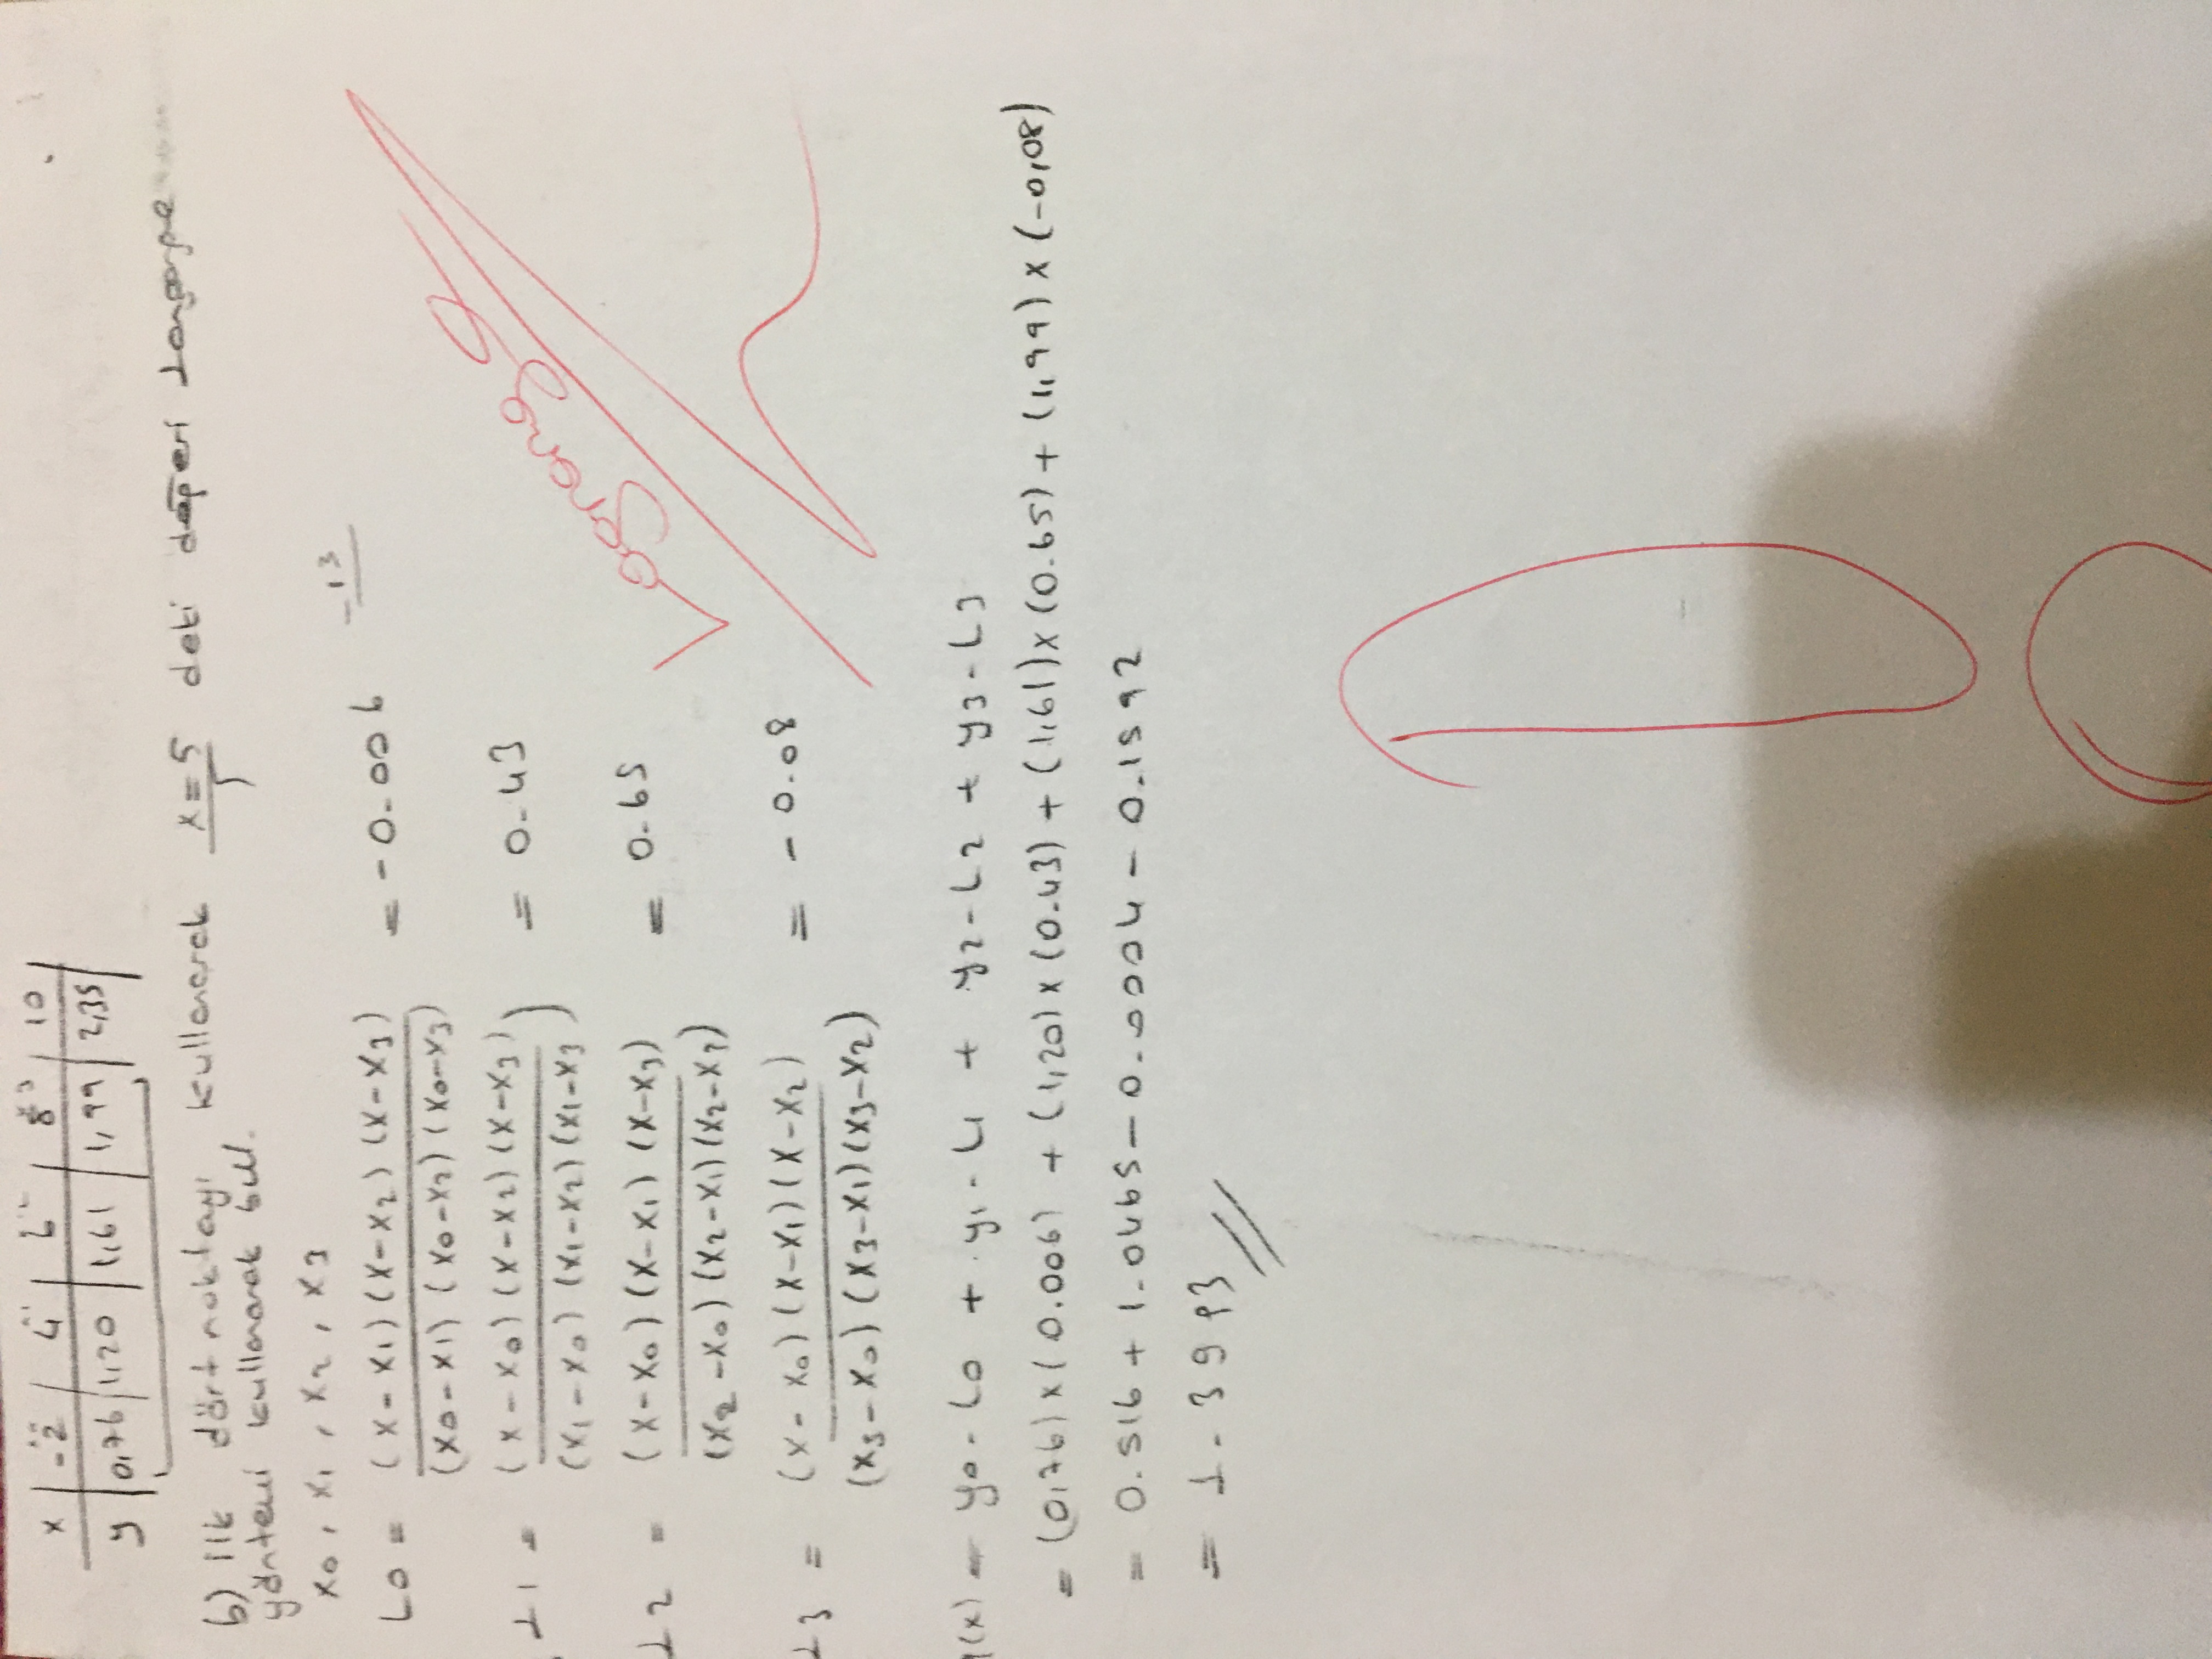 x | -2 | 4 | 6 | 8 | 10
y | 0,76 | 1,20 | 1,61 | 1,99 | 2,35
b) ilk dört noktayı kullanarak x=5 deki değeri
yöntemi kullanarak bul.
x0, x1, x2, x3
L0 = (x-x1)(x-x2)(x-x3) / (x0-x1)(x0-x2)(x0-x3) = -0.006
-13
L1 = (x-x0)(x-x2)(x-x3) / (x1-x0)(x1-x2)(x1-x3) = 0.43
L2 = (x-x0)(x-x1)(x-x3) / (x2-x0)(x2-x1)(x2-x3) = 0.65
L3 = (x-x0)(x-x1)(x-x2) / (x3-x0)(x3-x1)(x3-x2) = -0.08
Lagrange
(x) = y0-L0 + y1-L1 + y2-L2 + y3-L3
= (0,76)x(0.006) + (1,20)x(0.43) + (1,61)x(0.65) + (1,99)x(-0,08)
= 0.516 + 1.0465 - 0.0004 - 0.1592